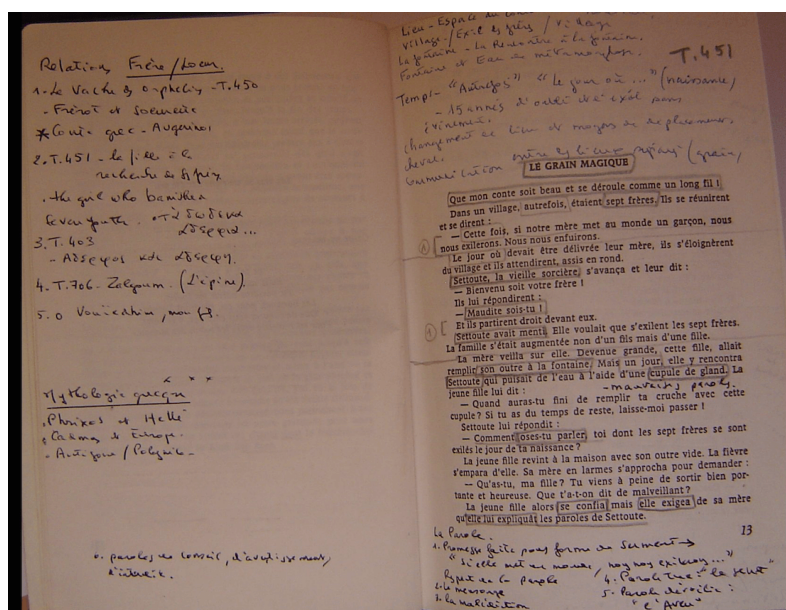 Relations Frère/Soeur.
1. La Vache des orphelins - T.450
- Frérot et Soeurette
* Conte grec - Augerinos
2. T.451 - la fille à la
recherche de ses frères
. the girl who banished
seven youths. τα δώδεκα
αδέρφια...
3. T. 403
- Αδερφός και αδερφή.
4. T.706 - Zelgoum. (L'épine).
5. o Vouniechia, mon fils.
* * *
Mythologie grecque
. Phrixos et Hellé
. Cadmos et Europe.
. Antigone / Polynice
6. paroles de conseil, d'avertissement,
d'interdit.
Lieu - Espace du conte
Village / Exil des frères / village
La fontaine - La Rencontre à la fontaine.
Fontaine et Eau de métamorphose.
T.451
Temps - "Autrefois" "Le jour où..." (naissance)
- 15 années d'oubli et d'exil sans
évènement.
changement de lieu et moyens de déplacement
cheval.
Communication entre les lieux (grain,
LE GRAIN MAGIQUE
Que mon conte soit beau et se déroule comme un long fil !
Dans un village, autrefois, étaient sept frères. Ils se réunirent
et se dirent :
— Cette fois, si notre mère met au monde un garçon, nous
nous exilerons. Nous nous enfuirons.
Le jour où devait être délivrée leur mère, ils s'éloignèrent
du village et ils attendirent, assis en rond.
Settoute, la vieille sorcière, s'avança et leur dit :
— Bienvenu soit votre frère !
Ils lui répondirent :
— Maudite sois-tu !
Et ils partirent droit devant eux.
Settoute avait menti. Elle voulait que s'exilent les sept frères.
La famille s'était augmentée non d'un fils mais d'une fille.
La mère veilla sur elle. Devenue grande, cette fille, allait
remplir son outre à la fontaine. Mais un jour, elle y rencontra
Settoute qui puisait de l'eau à l'aide d'une cupule de gland. La
jeune fille lui dit :
- mauvaises paroles.
— Quand auras-tu fini de remplir ta cruche avec cette
cupule ? Si tu as du temps de reste, laisse-moi passer !
Settoute lui répondit :
— Comment oses-tu parler, toi dont les sept frères se sont
exilés le jour de ta naissance ?
La jeune fille revint à la maison avec son outre vide. La fièvre
s'empara d'elle. Sa mère en larmes s'approcha pour demander :
— Qu'as-tu, ma fille ? Tu viens à peine de sortir bien por-
tante et heureuse. Que t'a-t-on dit de malveillant ?
La jeune fille alors se confia mais elle exigea de sa mère
qu'elle lui expliquât les paroles de Settoute.
13
La Parole.
1. Promesse faite sous forme de Serment →
"Si elle met au monde, nous nous exilerons..."
Respect de la parole
2. Le mensonge
3. La malédiction
4. Parole tue : "le secret"
5. Parole dévoilée :
"l'Aveu"